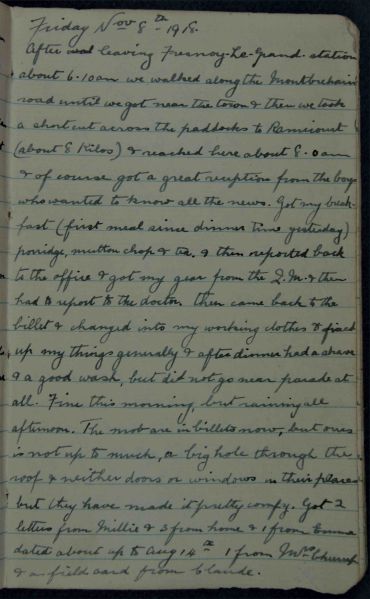 Friday Nov 8th 1918.
After leaving Fresnoy-Le-Grand station
about 6.10am we walked along the Montbrehain
road until we got near the town & then we took
a short cut across the paddocks to Ramicourt
(about 8 Kilos) & reached here about 8.0am
& of course got a great reception from the boys
who wanted to know all the news. Got my break-
fast (first meal since dinner time yesterday)
porridge, mutton chop & tea. & then reported back
to the office & got my gear from the Q.M. & then
had to report to the doctor then came back to the
billet & changed into my working clothes &
up my things generally & after dinner had a shave
& a good wash, but did not go near parade at
all. Fine this morning, but raining all
afternoon. The mob are in billets now, but ours
is not up to much, a big hole through the
roof & neither doors or windows in their places
but they have made it pretty comfy. Got 2
letters from Millie & 3 from home & 1 from Emma
dated about up to Aug 14th 1 from Mrs
& a field card from Claude.